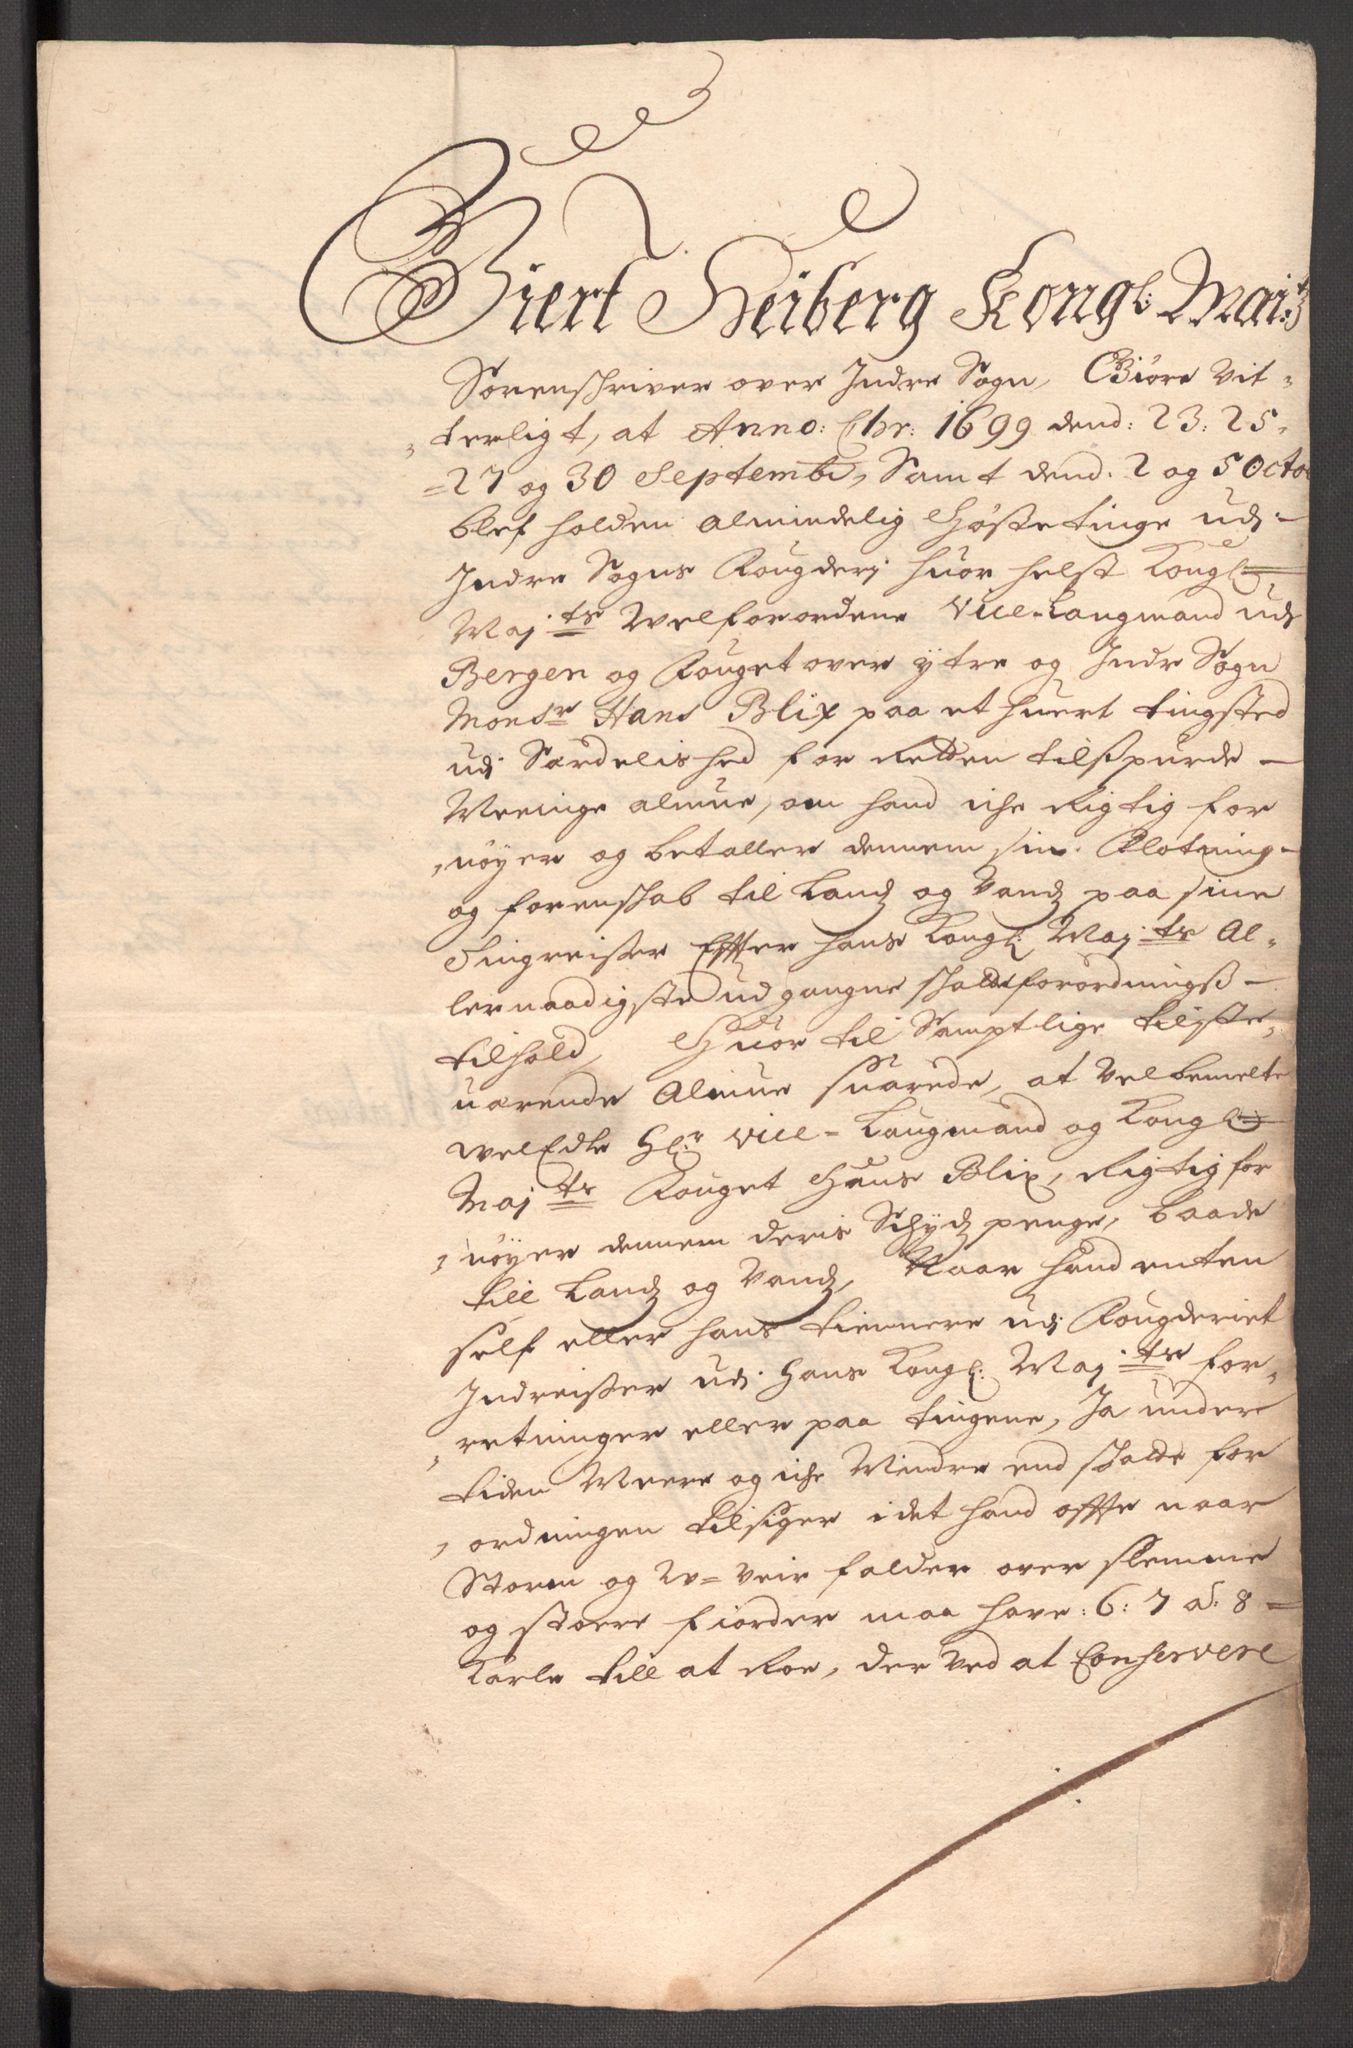 Giert Heiberg Kongl: Mai:ts
Sorenschriver over Indre Sogn, Giøre Vit-
terligt, at Anno: Chr: 1699 dend: 23: 25-
27 og 30 Septembr, Samt dend. 2 og 5 Octo
blef holden almindelig Høste tinge udi
Indre Sogns Fougderj huor helst Kongl
Maj:ts Welforordene Vice-Laugmand udi
Bergen og Fouget over ytre og Indr Sogn
Monsr Hans Blix paa et huert tingsted
udi Særdelished for Retten tilspurde
Meenige almue, om hand iche Rigtig for
nøyer og betaller dennem sin
og forenskab til Landz og Vandz paa sine
Tingreiser Effter hans Kongl: Maj:ts Al-
lernaadigste udgangne schatzforordningß
tilhold, Huor til Samptlige tilste-
uærende Almue suarede, at Velbemelte
WelEdle Hl:r Vice-Laugmand og Kongl
Maj:ts Fouget Hans Blix, Rigtig for
nøyer dennem deris Schydz penge, baade
till Landz og Vandz, Naar hand enten
self eller hans tiennere udi Fougderiet
Indreiser udi Hans Kongl: Maj:ts for-
retninger eller paa tingene, Ja under
tiden Meere og iche Mindre end for
ordningen tilsiger i det hand offte naar
Storm og W=veir falder over slemme
og stoere fiorder maa have: 6: 7 a: 8
Karle till at Roe, der ved at Conservere